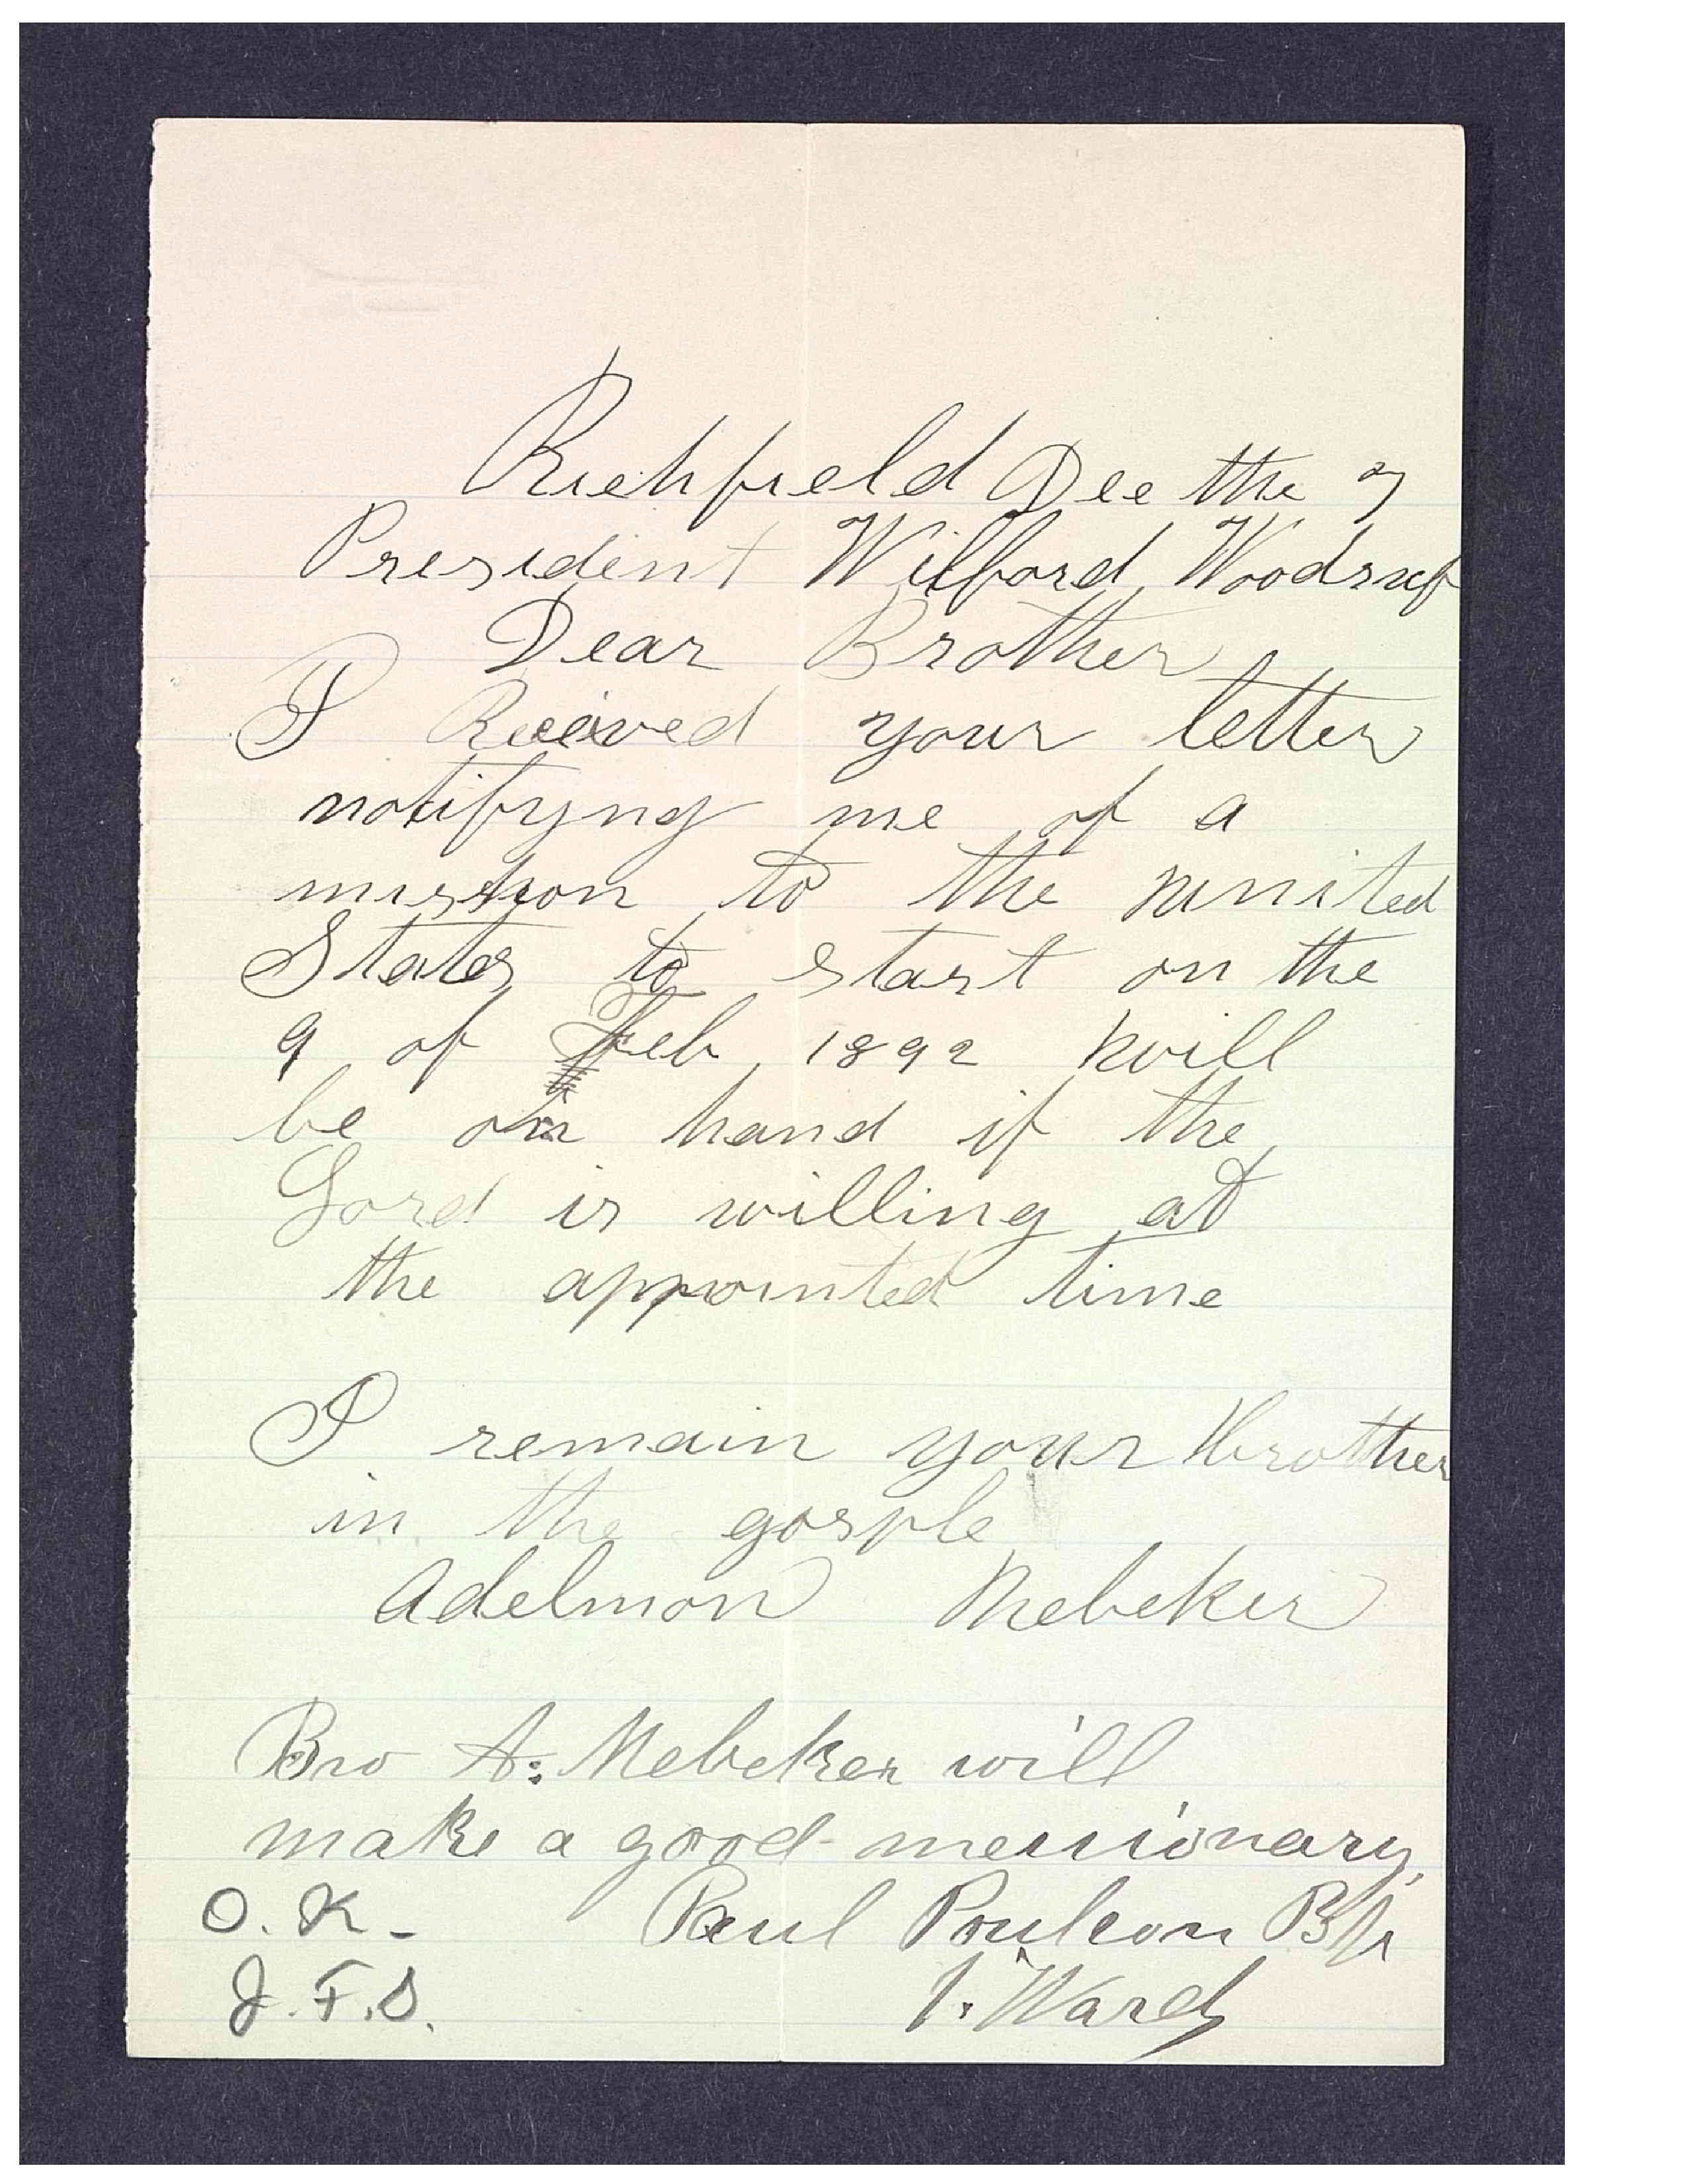 Richfield Dec the 7
President Wilford Woodruf
Dear Brother
I Recieved your letter
notifyng me of a
mission to the united
States to start on the
9 of Feb 1892 will
be on hand if the
Lord is willing at
the appointed time
I remain your brother
in the gosple
Adelmon Nebeker
Bro A. Nebeker will
make a good messionary
O. K. - Paul Poulson Bp
J. F. S. 1. Ward